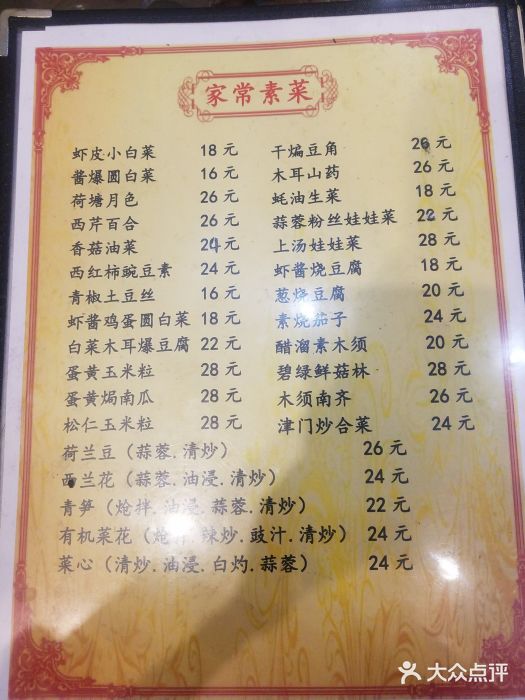 家常素菜
虾皮小白菜 18元 干煸豆角 26元
酱爆圆白菜 16元 木耳山药 26元
荷塘月色 26元 蚝油生菜 18元
西芹百合 26元 蒜蓉粉丝娃娃菜 22元
香菇油菜 24元 上汤娃娃菜 28元
西红柿豌豆素 24元 虾酱烧豆腐 18元
青椒土豆丝 16元 葱烧豆腐 20元
虾酱鸡蛋圆白菜 18元 素烧茄子 24元
白菜木耳爆豆腐 22元 醋溜素木须 20元
蛋黄玉米粒 28元 碧绿鲜菇林 28元
蛋黄焗南瓜 28元 木须南齐 26元
松仁玉米粒 28元 津门炒合菜 24元
荷兰豆（蒜蓉.清炒） 26元
西兰花（蒜蓉.油浸.清炒） 24元
青笋（炝拌.油浸.蒜蓉.清炒） 22元
有机菜花（炝拌.辣炒.豉汁.清炒） 24元
菜心（清炒.油浸.白灼.蒜蓉） 24元
大众点评